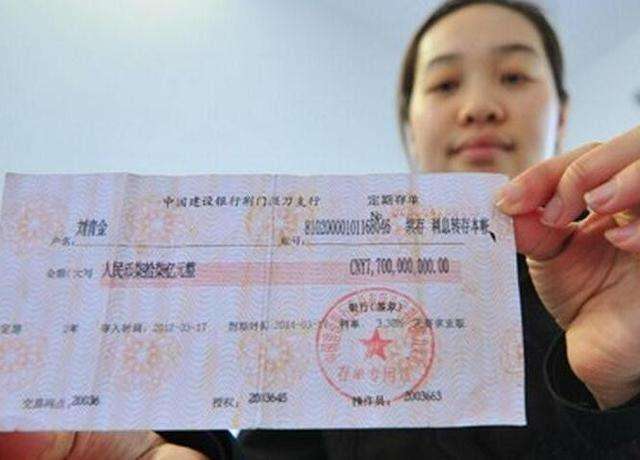 中国建设银行荆门掇刀支行 定期存单
刘青金
户名: 账号: 81020000101168046 续存 利息转存本金
金额(大写 人民币柒拾柒亿元整 CNY7,700,000,000.00
银行(签章)
定期 2年 存入时间: 2012-03-17 到期时间 2014-03-17 利率: 3.30%
存单专用章
交易网点: 20036 授权: 2003645 操作员: 2003663